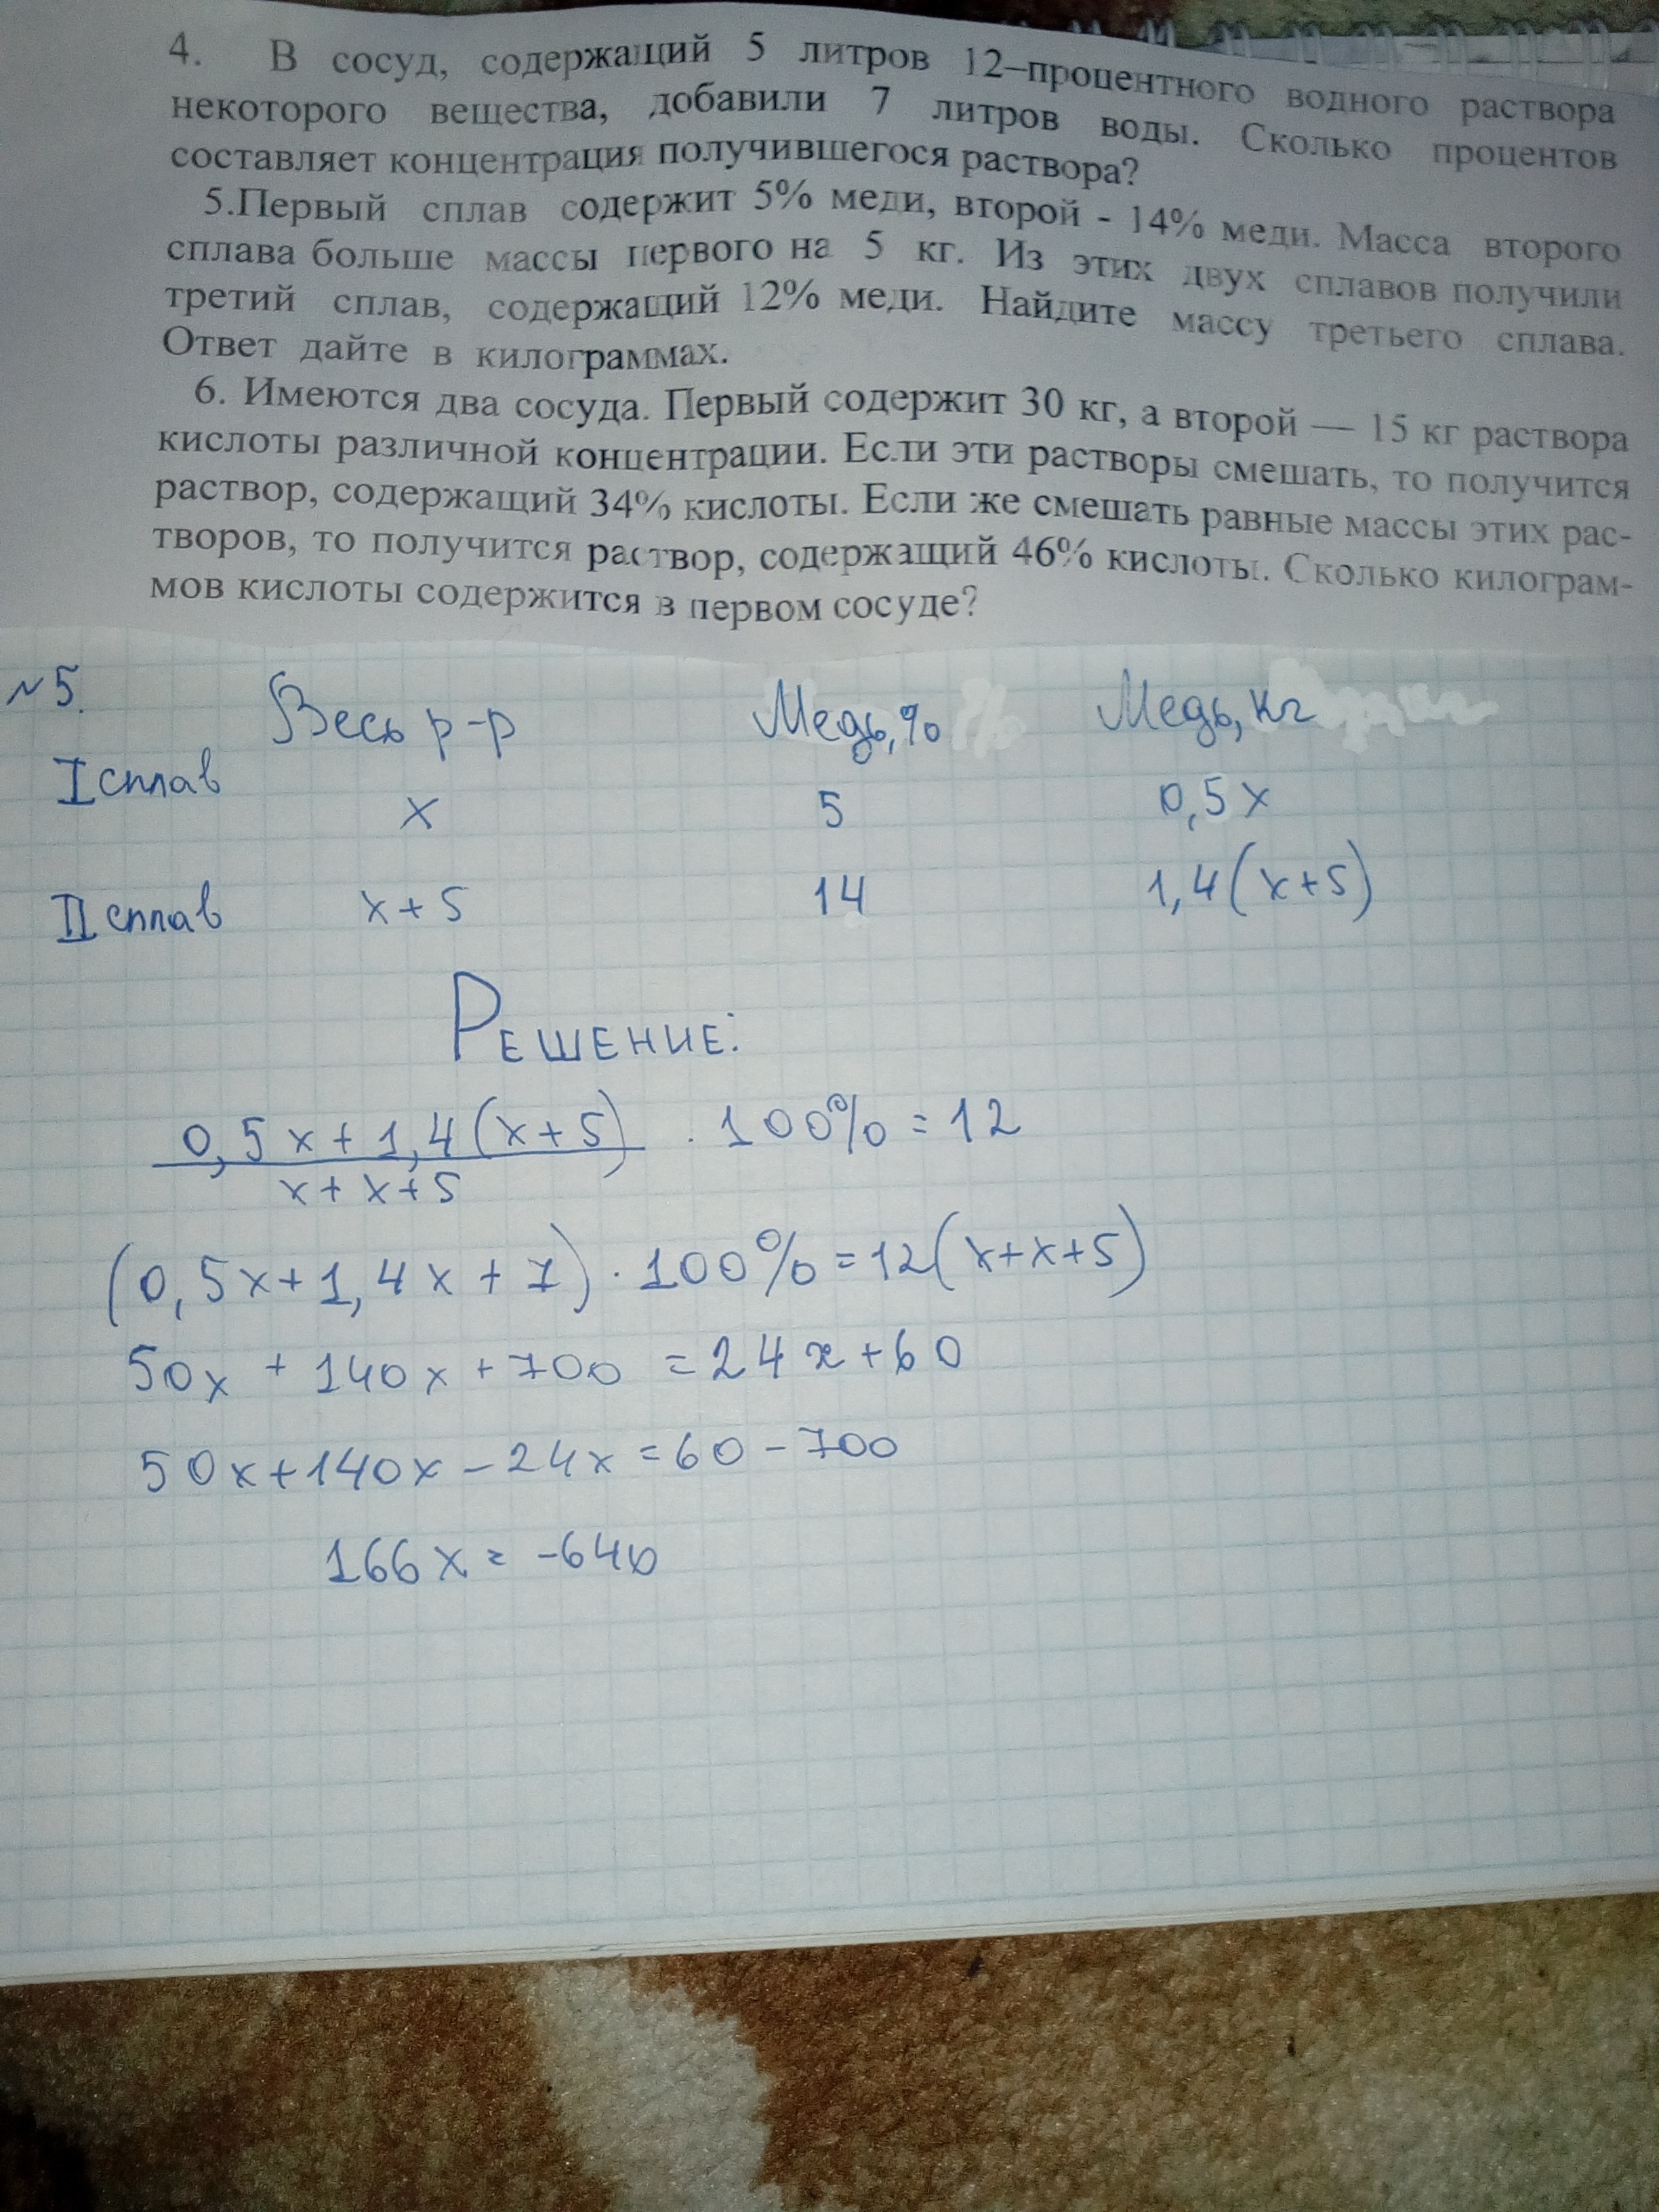 4. В сосуд, содержащий 5 литров 12–процентного водного раствора
некоторого вещества, добавили 7 литров воды. Сколько процентов
составляет концентрация получившегося раствора?
5.Первый сплав содержит 5% меди, второй - 14% меди. Масса второго
сплава больше массы первого на 5 кг. Из этих двух сплавов получили
третий сплав, содержащий 12% меди. Найдите массу третьего сплава.
Ответ дайте в килограммах.
6. Имеются два сосуда. Первый содержит 30 кг, а второй — 15 кг раствора
кислоты различной концентрации. Если эти растворы смешать, то получится
раствор, содержащий 34% кислоты. Если же смешать равные массы этих рас-
творов, то получится раствор, содержащий 46% кислоты. Сколько килограм-
мов кислоты содержится в первом сосуде?
№5. Весь р-р Медь,% Медь,кг
I сплав x 5 0,5x
II сплав x+5 14 1,4(x+5)
Решение:
0,5x+1,4(x+5) · 100%=12
x+x+5
(0,5x+1,4x+7)·100%=12(x+x+5)
50x + 140x+700 =24x+60
50x+140x-24x=60-700
166x=-640